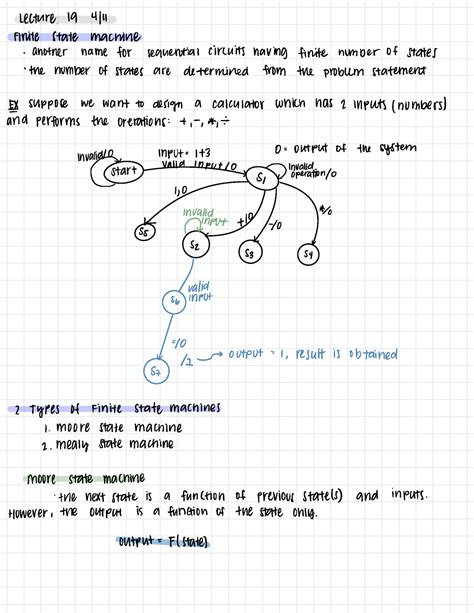 Lecture 19 4/11
Finite State Machine
· another name for sequential circuits having finite number of states
· the number of states are determined from the problem statement
EX suppose we want to design a calculator which has 2 inputs (numbers)
and performs the operations: +, -, *, ÷
invalid/0
start
input = 1+3
valid input/0
0 = output of the system
S1
invalid
operation/0
1,0
+/0
-/0
*/0
invalid
input
S5
S2
S3
S4
S6
valid
input
=/0
/1
output = 1, result is obtained
S7
2 Types of Finite State Machines
1. moore state machine
2. mealy state machine
moore state machine
· the next state is a function of previous state(s) and inputs.
However, the output is a function of the state only.
output = F(state)